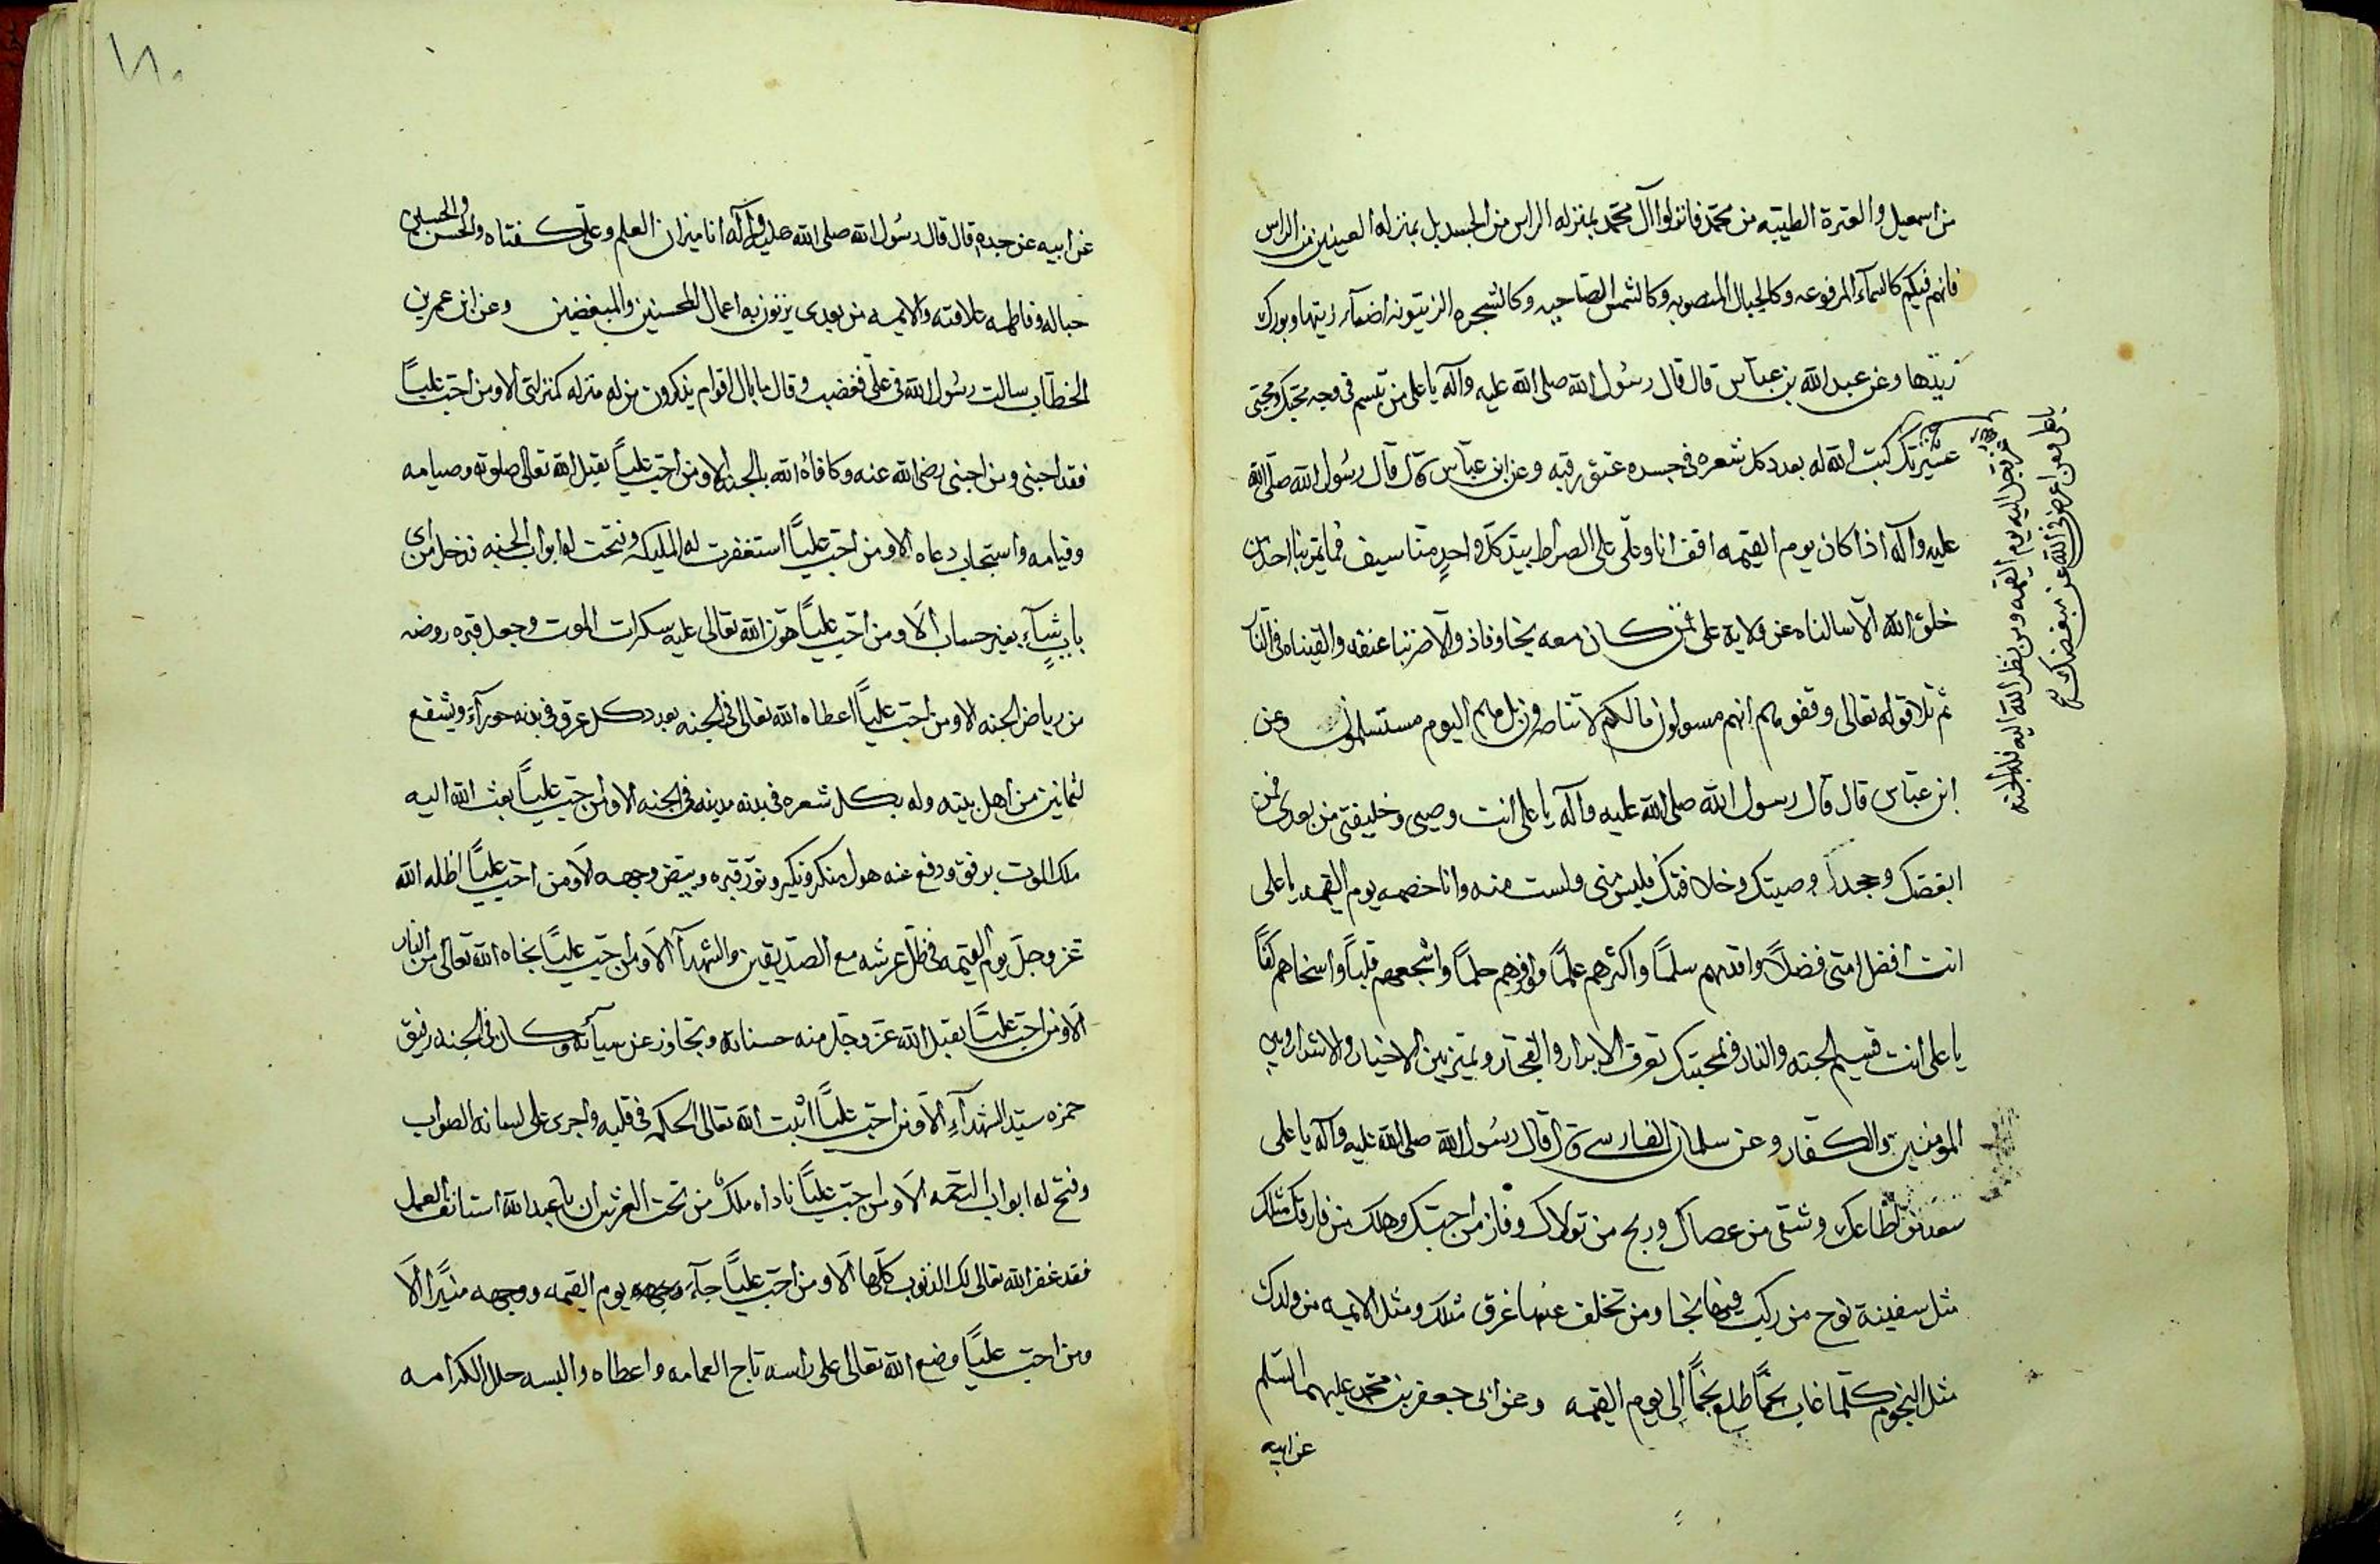 من اسمعيل والعترة الطيبه من محمد فانزلوا آل محمد بمنزله الراس من الجسد بل بمنزله العينين من الراس
فانهم فيكم كالسمآء المرفوعه وكالجبال المنصوبه وكالشمس الضاحيه وكالشجره الزيتونه اضآء زيتها وبورك
زيدها وعن عبد الله بن عباس قال قال رسول الله صلى الله عليه وآله يا على من تبسم فى وجه محبك ومحبى
عشيرتك كتب الله له بعدد كل شعره فى جسده عتق رقبه وعن ابن عباس قال قال رسول الله صلى الله
عليه وآله اذا كان يوم القيمه اقف انا وعلى على الصراط بيد كل واحد منا سيف فما يمر بنا احد من
خلق الله الا سالناه عن ولاية على فمن كان معه نجا وفاز والا ضربنا عنقه والقيناه فى النار
ثم تلا قوله تعالى وقفوهم انهم مسولون مالكم لا تناصرون بل هم اليوم مستسلمون وعن
ابن عباس قال قال رسول الله صلى الله عليه وآله يا على انت وصيى وخليفتى من بعدى فمن
ابغضك وجحد وصيتك وخلافتك فليس منى ولست منه وانا خصمه يوم القيمه يا على
انت افضل امتى فضلاً واقدمهم سلماً واكثرهم علماً واوفرهم حلماً واشجعهم قلباً واسخاهم كفاً
يا على انت قسيم الجنه والنار فبمحبتك تعرف الابرار والفجار وتميز بين الاخيار والاشرار وبين
المومنين والكفار وعن سلمان الفارسى قال قال رسول الله صلى الله عليه وآله يا على
سعد من اطاعك وشقى من عصاك وربح من تولاك وفاز من احبتك وهلك من فارقك مثلك
مثل سفينة نوح من ركب فيها نجا ومن تخلف عنها غرق مثلك ومثل الايمه من ولدك
مثل النجوم كلما غاب نجماً طلع نجماً الى يوم القيمه وعن ابى جعفر بن محمد عليهما السلم
عن ابيه
عز وجل اليه يوم القيمه ومن نظر الله اليه فله الجنه
يا على ومن اعرض فى الله عن مبغضك
١٨٠
عن ابيه عن جده قال قال رسول الله صلى الله عليه وآله انا ميزان العلم وعلى كفتاه والحسن والحسين
حباله وفاطمه علاقته والايمه من بعدى يزنون به اعمال المحسنين والمبغضين وعن ابن عمر بن
الخطاب سالت رسول الله فى على فغضب وقال ما بال اقوام يذكرون من له منزله كمنزلتى الا ومن احب علياً
فقد احبنى ومن احبنى رضى الله عنه وكافاه الله بالجنه الا ومن احب علياً يقبل الله تعالى صلوته وصيامه
وقيامه واستجاب دعاه الا ومن احب علياً استغفرت له المليكه وفتحت له ابواب الجنه فدخل من اى
باب شآء بغير حساب الا ومن احب علياً هون الله تعالى عليه سكرات الموت وجعل قبره روضه
من رياض الجنه الا ومن احب علياً اعطاه الله تعالى فى الجنه بعدد كل عرق فى بدنه حورآء ويشفع
لثمانين من اهل بيته وله بكل شعره فى بدنه مدينه فى الجنه الا ومن احب علياً بعث الله اليه
ملك الموت برفق ودفع عنه هول منكر ونكير ونور قبره وبيض وجهه الا ومن احب علياً اظله الله
عز وجل يوم القيمه فى ظل عرشه مع الصديقين والشهدآ الا ومن احب علياً نجاه الله تعالى من النار
الا ومن احب علياً يقبل الله عز وجل منه حسناته وتجاوز عن سيآته وكان فى الجنه رفيق
حمزه سيد الشهدآء الا ومن احب علياً اثبت الله تعالى الحكمه فى قلبه واجرى على لسانه الصواب
وفتح له ابواب الرحمه الا ومن احب علياً ناداه ملك من تحت العرش ان يا عبد الله استانف العمل
فقد غفر الله تعالى لك الذنوب كلها الا ومن احب علياً جآء يوم القيمه ووجهه منيراً الا
ومن احب علياً وضع الله تعالى على راسه تاج العمامه واعطاه والبسه حلل الكرامه